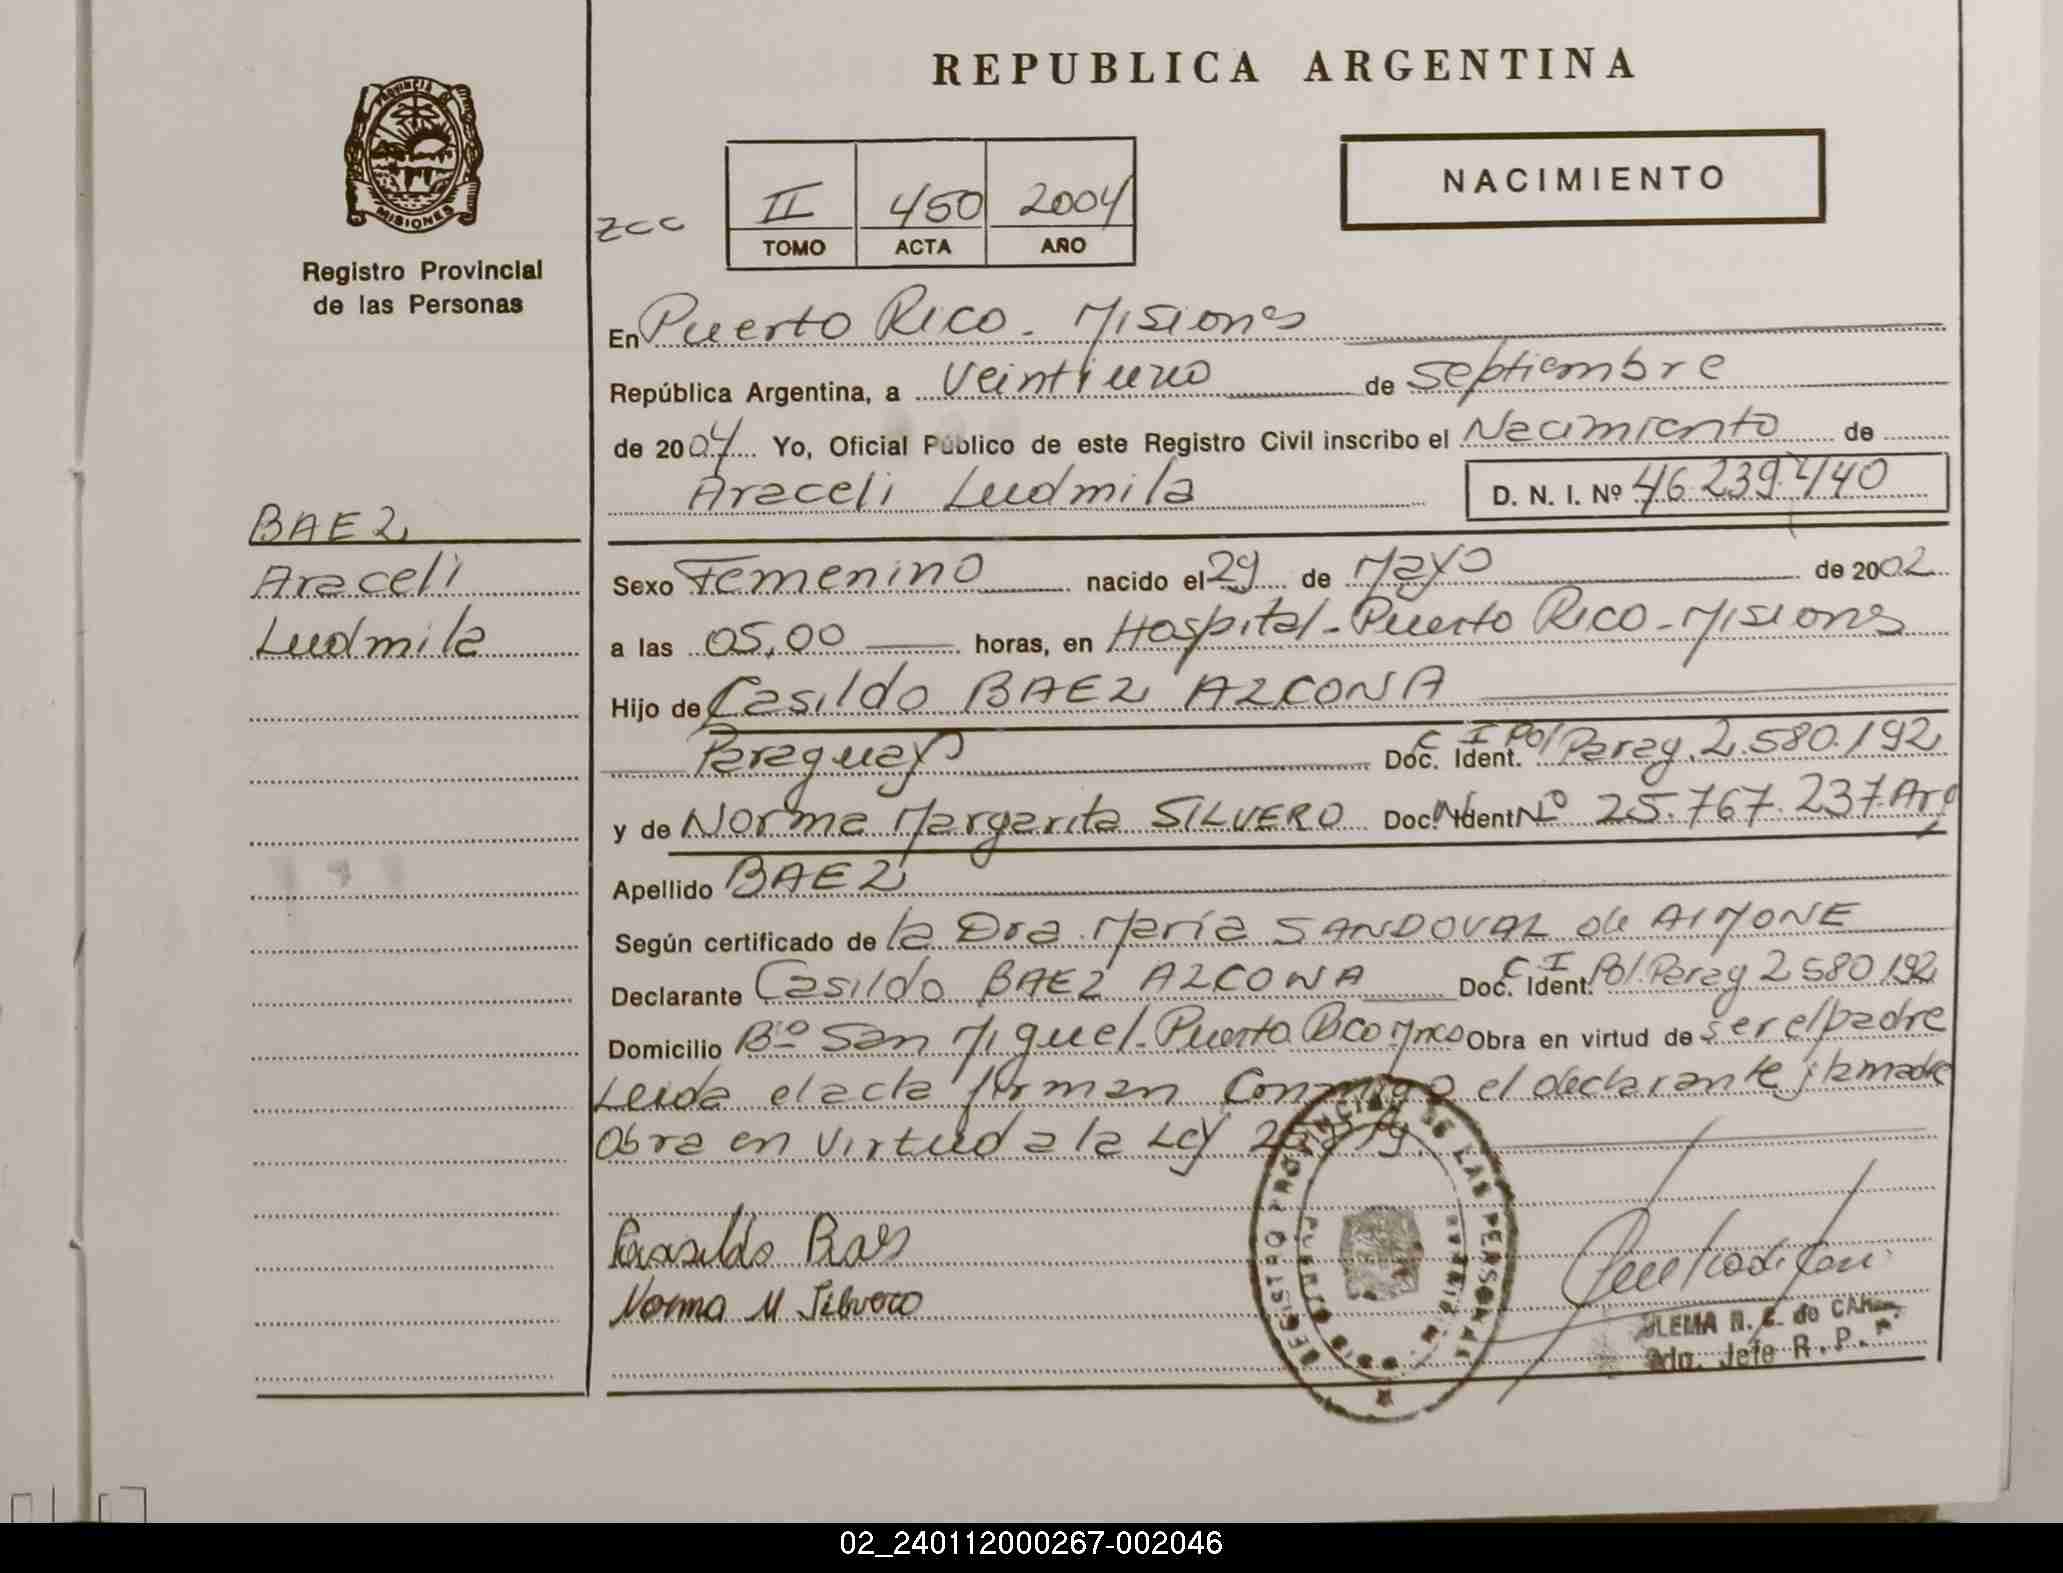 REPUBLICA ARGENTINA
PROVINCIA DE
MISIONES
Registro Provincial
de las Personas
NACIMIENTO
zcc
II 450 2004
TOMO ACTA AÑO
En Puerto Rico - Misiones
República Argentina, a Veintiuno de Septiembre
de 2004 Yo, Oficial Público de este Registro Civil inscribo el Nacimiento de
Araceli Ludmila D. N. I. Nº 46.239.440
BAEZ
Araceli
Ludmila
Sexo Femenino nacido el 29 de Mayo de 2002
a las 05,00 horas, en Hospital - Puerto Rico - Misiones
Hijo de Casildo BAEZ AZCONA
Paraguayo Doc. Ident. C I Pol Parag. 2.580.192
y de Norma Margarita SILVERO Doc. Ident Nº 25.767.237 Arg
Apellido BAEZ
Según certificado de la Dra María SANDOVAL de AIMONE
Declarante Casildo BAEZ AZCONA Doc. Ident. C I Pol. Parag 2580192
Domicilio Bº San Miguel - Puerto Rico Mnes Obra en virtud de ser el padre
Leida el acta firman conmigo el declarante y la madre
Obra en virtud a la Ley
Casildo Baes
Norma M Silvero
REGISTRO PROVINCIAL DE LAS PERSONAS
PUERTO RICO
MISIONES
ZULEMA N. E. de
Adm. Jefe R. P. P.
02_240112000267-002046